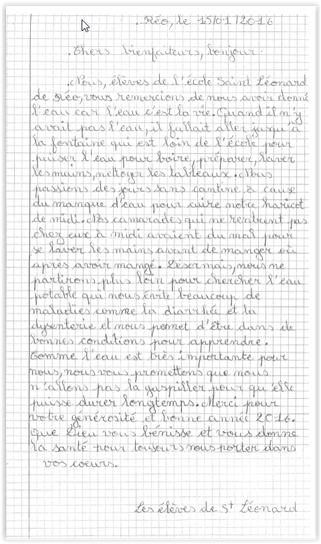 Réo, le 15/01/2016
Chers bienfaiteurs, bonjour
Nous, élèves de l'école Saint Léonard
de Réo, vous remercions de nous avoir donné
l'eau car l'eau c'est la vie. Quand il n'y
avait pas l'eau, il fallait aller jusqu'à
la fontaine qui est loin de l'école pour
puiser l'eau pour boire, préparer, laver
les mains, nettoyer les tableaux. Nous
passions des jours sans cantine à cause
du manque d'eau pour cuire notre haricot
de midi. Nos camarades qui ne rentrent pas
chez eux à midi avaient du mal pour
se laver les mains avant de manger ou
après avoir mangé. Désormais, nous ne
partirons plus loin pour chercher l'eau
potable qui nous évite beaucoup de
maladies comme la diarrhée et la
dysenterie et nous permet d'être dans de
bonnes conditions pour apprendre.
Comme l'eau est très importante pour
nous, nous vous promettons que nous
n'allons pas la gaspiller pour qu'elle
puisse durer longtemps. Merci pour
votre générosité et bonne année 2016.
Que Dieu vous bénisse et vous donne
la santé pour toujours nous porter dans
vos coeurs.
Les élèves de St Léonard